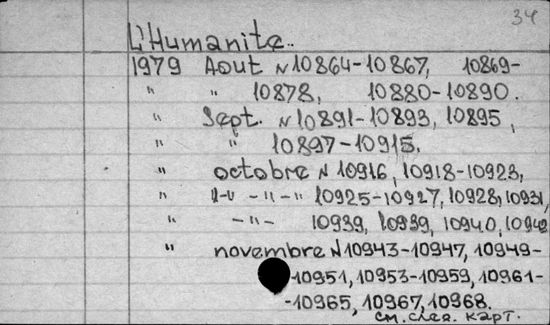 34
L'Humanite.
1979 Aout N 10864-10867, 10869-
" " 10878, 10880-10890.
" Sept. N 10891-10893, 10895,
" " 10897-10915.
" octobre N 10916, 10918-10923,
" -"- -"- 10925-10927, 10928, 10931,
" -"- 10939, 10939, 10940, 10942
" novembre N 10943-10947, 10949-
-10951, 10953-10959, 10961-
-10965, 10967, 10968.
см. след. карт.